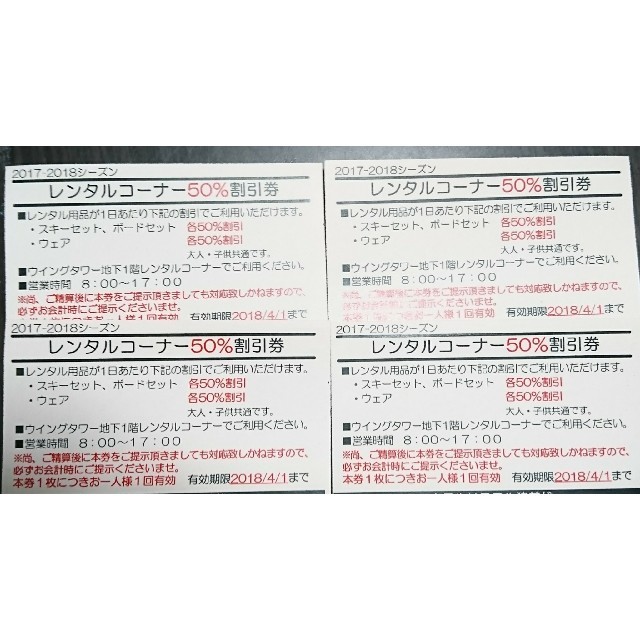 2017-2018シーズン
レンタルコーナー50%割引券
■レンタル用品が1日あたり下記の割引でご利用いただけます。
・スキーセット、ボードセット 各50%割引
・ウェア 各50%割引
大人・子供共通です。
■ウイングタワー地下1階レンタルコーナーでご利用ください。
■営業時間 8:00~17:00
※尚、ご精算後に本券をご提示頂きましても対応致しかねますので、
必ずお会計時にご提示くださいませ。
有効期限2018/4/1まで
2017-2018シーズン
レンタルコーナー50%割引券
■レンタル用品が1日あたり下記の割引でご利用いただけます。
・スキーセット、ボードセット 各50%割引
・ウェア 各50%割引
大人・子供共通です。
■ウイングタワー地下1階レンタルコーナーでご利用ください。
■営業時間 8:00~17:00
※尚、ご精算後に本券をご提示頂きましても対応致しかねますので、
必ずお会計時にご提示くださいませ。
本券1枚につきお一人様1回有効 有効期限2018/4/1まで
2017-2018シーズン
レンタルコーナー50%割引券
■レンタル用品が1日あたり下記の割引でご利用いただけます。
・スキーセット、ボードセット 各50%割引
・ウェア 各50%割引
大人・子供共通です。
■ウイングタワー地下1階レンタルコーナーでご利用ください。
■営業時間 8:00~17:00
※尚、ご精算後に本券をご提示頂きましても対応致しかねますので、
必ずお会計時にご提示くださいませ。
本券1枚につきお一人様1回有効 有効期限2018/4/1まで
2017-2018シーズン
レンタルコーナー50%割引券
■レンタル用品が1日あたり下記の割引でご利用いただけます。
・スキーセット、ボードセット 各50%割引
・ウェア 各50%割引
大人・子供共通です。
■ウイングタワー地下1階レンタルコーナーでご利用ください。
■営業時間 8:00~17:00
※尚、ご精算後に本券をご提示頂きましても対応致しかねますので、
必ずお会計時にご提示くださいませ。
本券1枚につきお一人様1回有効 有効期限2018/4/1まで